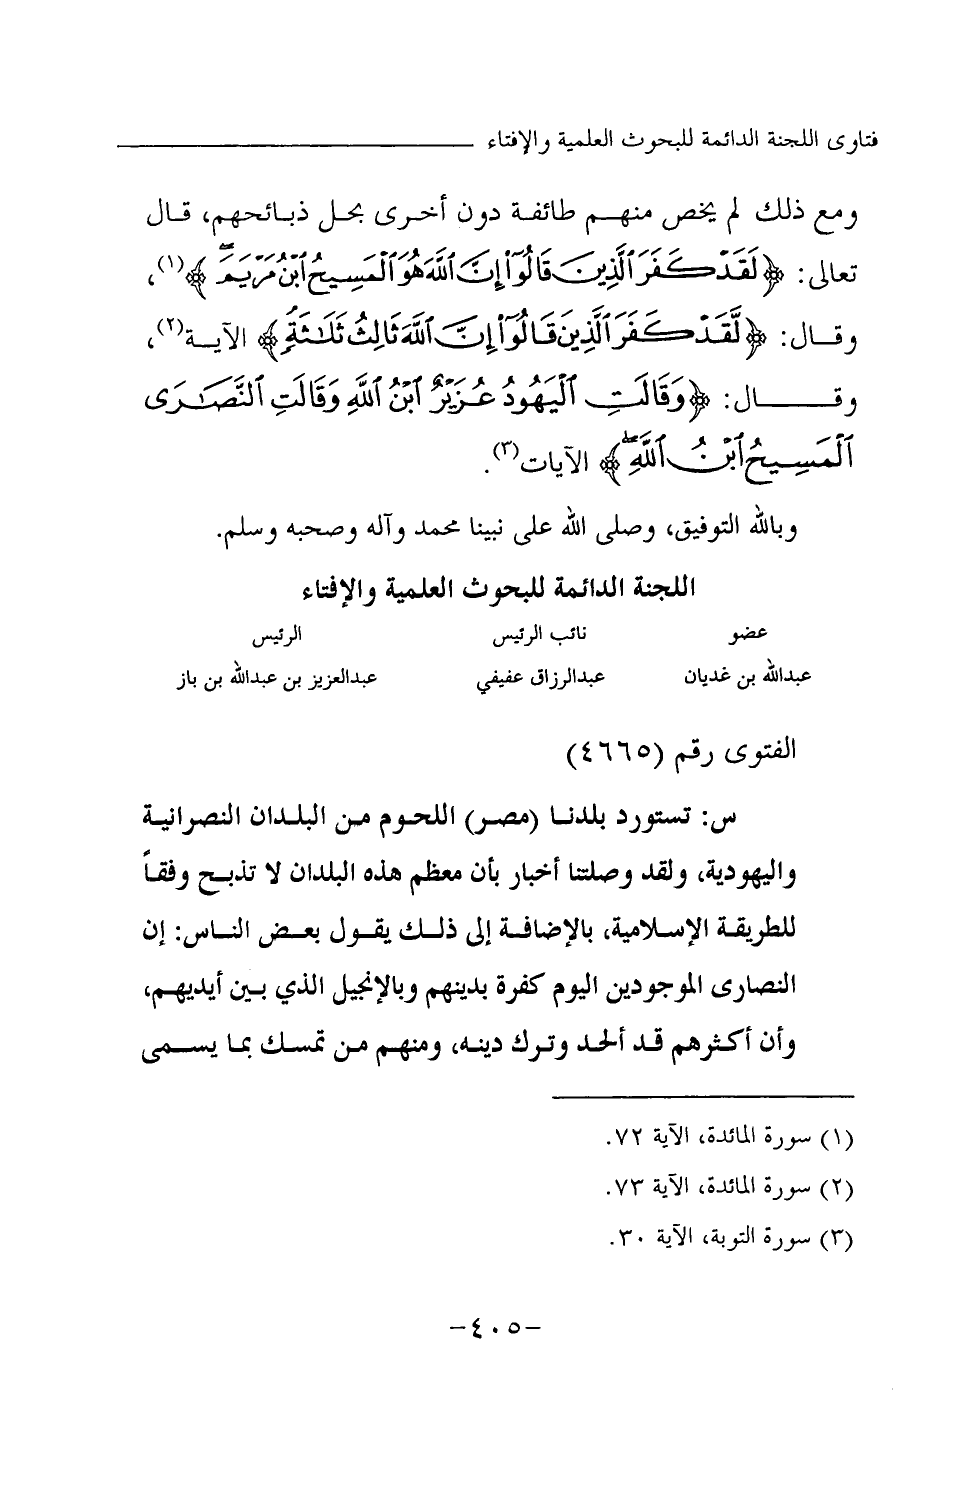 فتاوى اللجنة الدائمة للبحوث العلمية والإفتاء
ومع ذلك لم يخص منهم طائفة دون أخرى بحل ذبائحهم، قال
تعالى: ﴿لَقَدْ كَفَرَ ٱلَّذِينَ قَالُوٓا۟ إِنَّ ٱللَّهَ هُوَ ٱلْمَسِيحُ ٱبْنُ مَرْيَمَ ۖ﴾(١)،
وقال: ﴿لَّقَدْ كَفَرَ ٱلَّذِينَ قَالُوٓا۟ إِنَّ ٱللَّهَ ثَالِثُ ثَلَـٰثَةٍ ۘ﴾ الآية(٢)،
وقال: ﴿وَقَالَتِ ٱلْيَهُودُ عُزَيْرٌ ٱبْنُ ٱللَّهِ وَقَالَتِ ٱلنَّصَـٰرَى
ٱلْمَسِيحُ ٱبْنُ ٱللَّهِ ۖ﴾ الآيات(٣).
وبالله التوفيق، وصلى الله على نبينا محمد وآله وصحبه وسلم.
اللجنة الدائمة للبحوث العلمية والإفتاء
عضو نائب الرئيس الرئيس
عبدالله بن غديان عبدالرزاق عفيفي عبدالعزيز بن عبدالله بن باز
الفتوى رقم (٤٦٦٥)
س: تستورد بلدنا (مصر) اللحوم من البلدان النصرانية
واليهودية، ولقد وصلتنا أخبار بأن معظم هذه البلدان لا تذبح وفقاً
للطريقة الإسلامية، بالإضافة إلى ذلك يقول بعض الناس: إن
النصارى الموجودين اليوم كفرة بدينهم وبالإنجيل الذي بين أيديهم،
وأن أكثرهم قد ألحد وترك دينه، ومنهم من تمسك بما يسمى
(١) سورة المائدة، الآية ٧٢.
(٢) سورة المائدة، الآية ٧٣.
(٣) سورة التوبة، الآية ٣٠.
-٤٠٥-